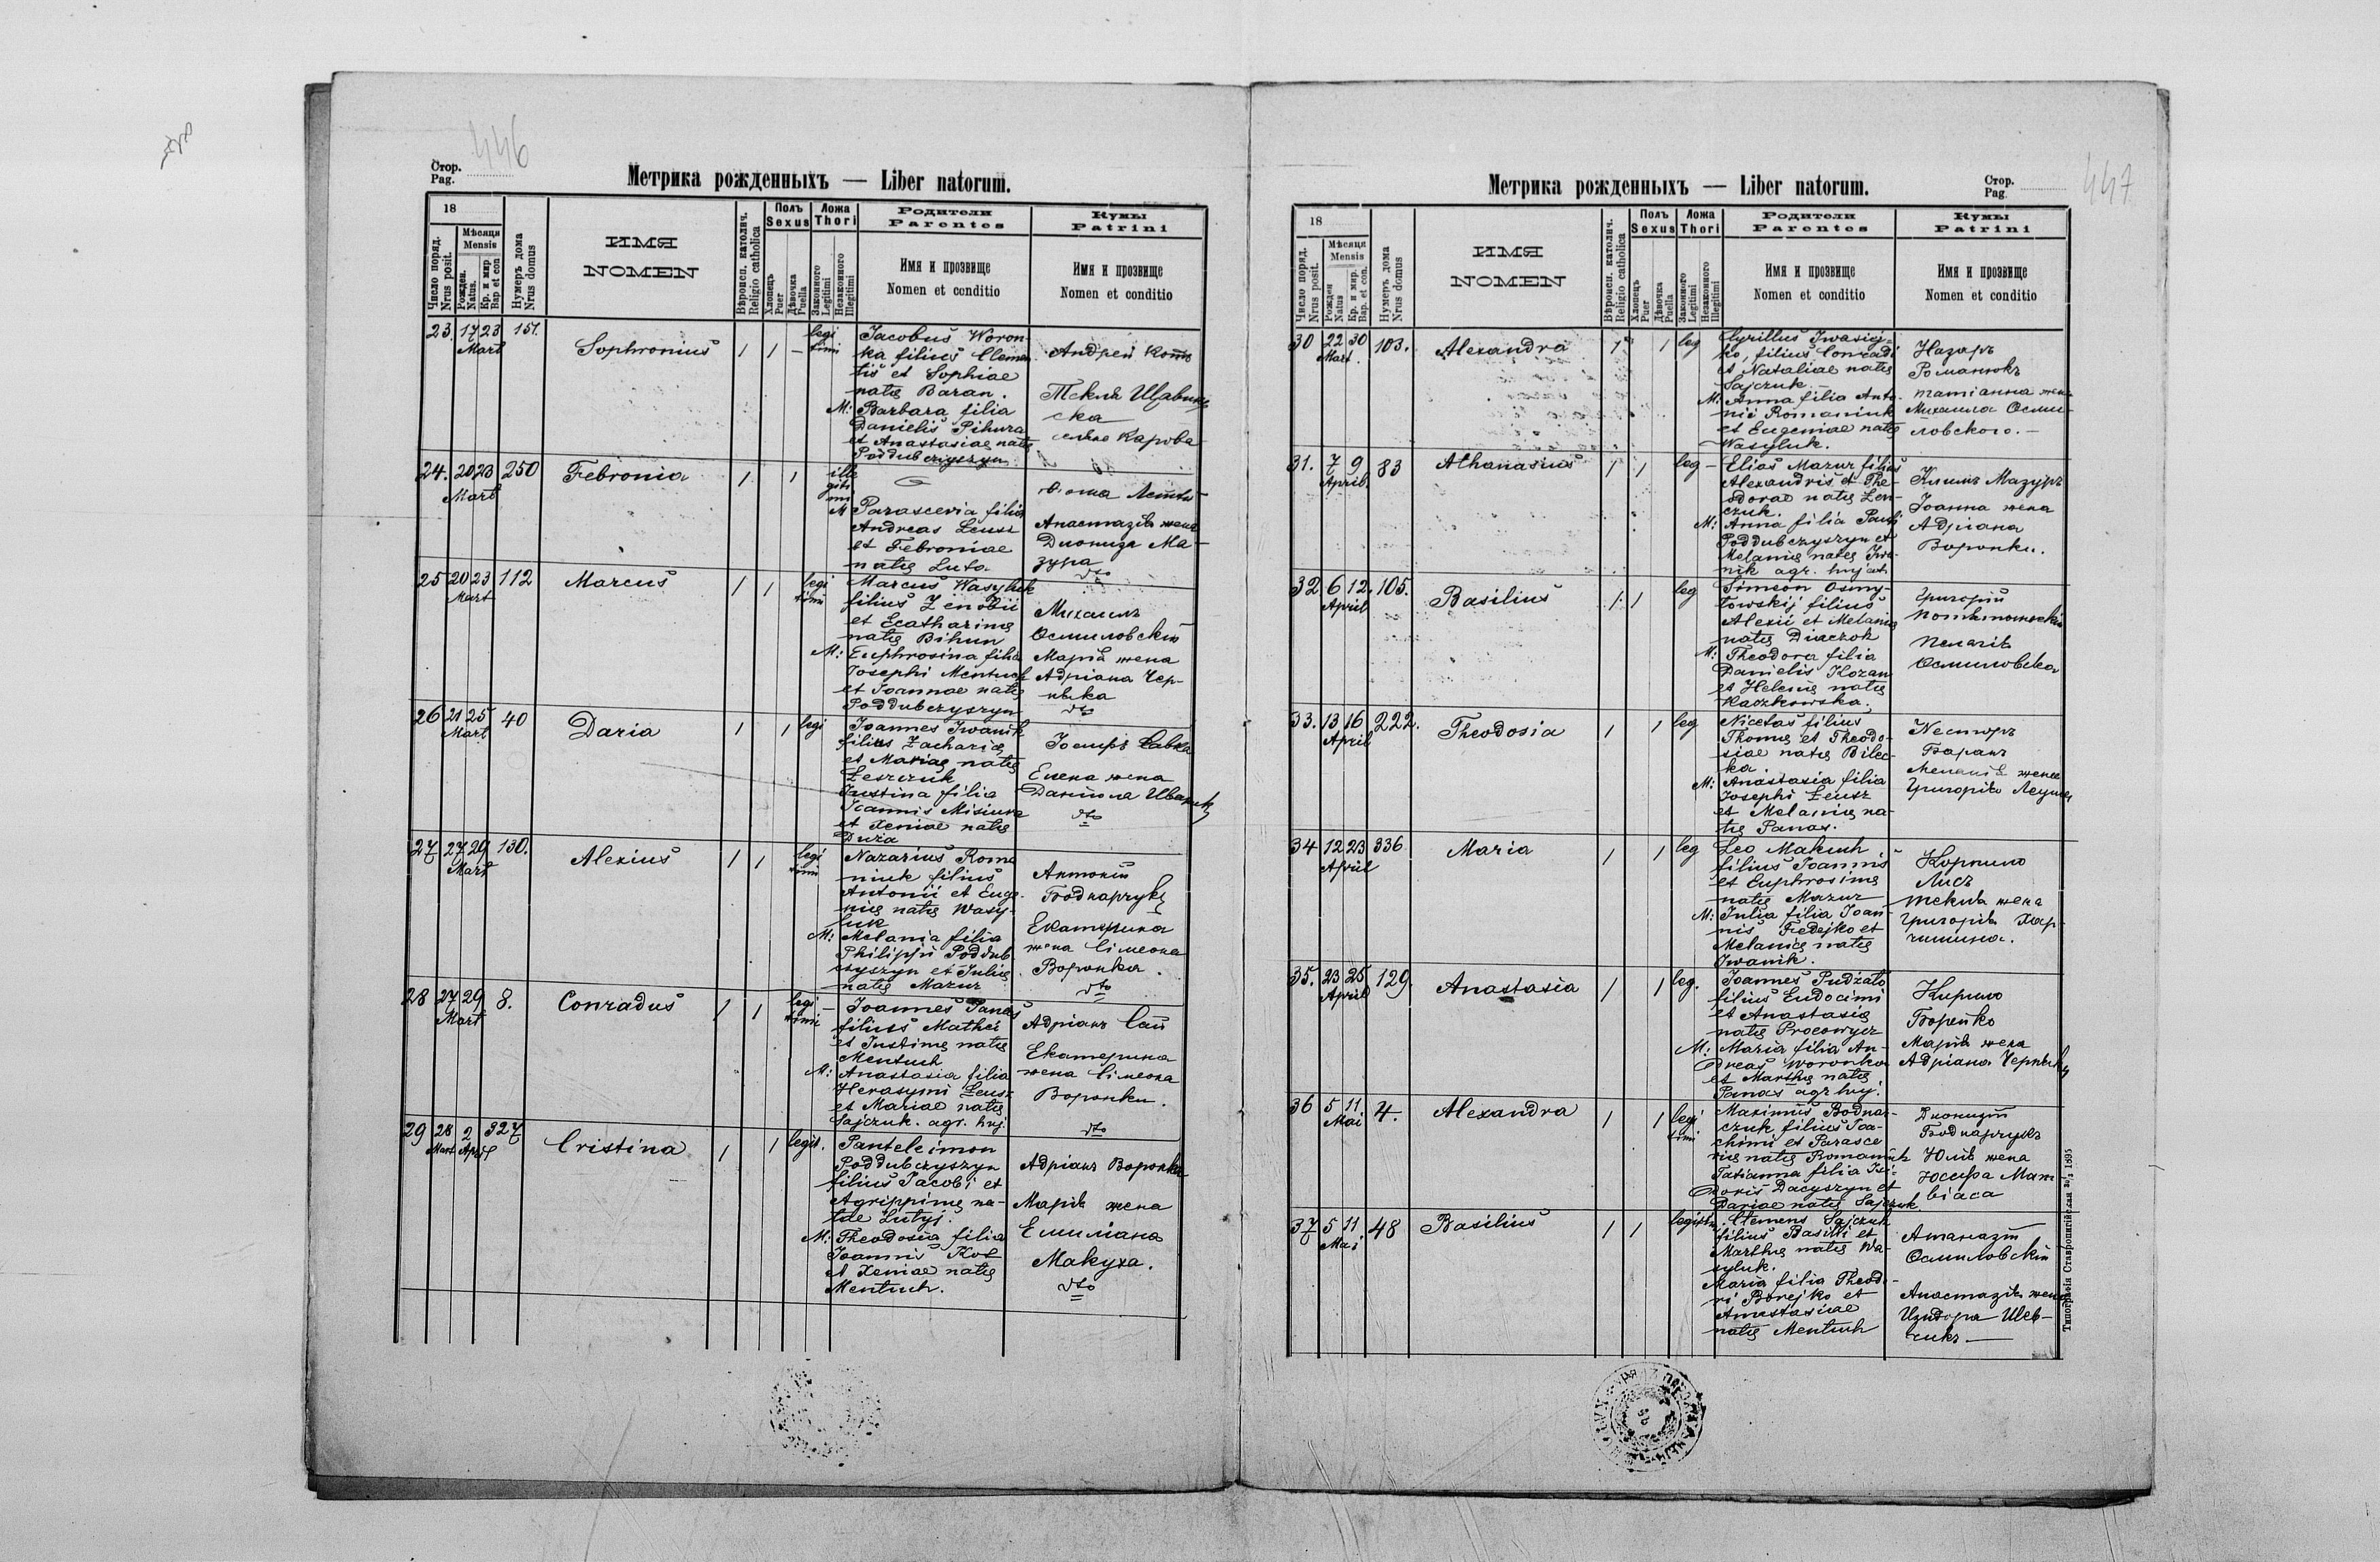 446
Стор.
Pag.
Метрика рожденныхъ — Liber natorum.
18
Число поряд.
Nrus posit.
Мѣсяця
Mensis
Рожден.
Natus.
Кр. и мир.
Bap et con
Нумеръ дома
Nrus domus
ИМЯ
NOMEN
Вѣроисп. католич.
Religio catholica
Полъ
Sexus
Хлопець
Puer
Дѣвочка
Puella
Ложа
Thori
Законного
Legitimi
Незаконного
Illegitimi
Родители
Parentes
Имя и прозвище
Nomen et conditio
Кумы
Patrini
Имя и прозвище
Nomen et conditio
23. 17 23 151.
Mart
Sophronius
1 1 —
legi
timi
Jacobus Woron
ka filius Clemen
tis et Sophiae
natę Baran.
M: Barbara filia
Danielis Pihura
et Anastasiae natę
Poddubczyszyn
Андрей
Текля
ска
24. 20 23 250
Mart
Febronia
1 1
ille
giti
mi
M Parascevia filia
Andreas Leusz
et Febroniae
natę Luta.
Анастазія жена
Диониза Ма-
зура
dto
25 20 23 112
Mart
Marcus
1 1
legi
timi
Marcus Wasyluk
filius Zenobii
et Ecatharinę
natę Bihun
M: Euphrosina filia
Josephi Mentuch
et Joannae natę
Poddubczyszyn
Михаилъ
Осмиловскій
Марія жена
Адріана Чер-
няка
dto
26 21 25 40
Mart
Daria
1 1
legi
Joannes Iwanik
filius Zacharię
et Mariaę natę
Leszczuk
Justina filia
Joannis Misiura
et Xeniae natę
Duża
Іосифъ Савка
Елена жена
Даніила Иваникъ
dto
27 27 29 130.
Mart
Alexius
1 1
legi
timi
Nazarius Roma
niuk filius
Antonii et Euge-
nię natę Wasy-
luk
M: Melania filia
Philippi Poddub
czyszyn et Julię
natę Mazur
Антоній
Боднарчукъ
Екатерина
жена Сімеона
Воронка.
dto
28 27 29 8.
Mart
Conradus
1 1
legi
timi
Joannes Panas
filius Mathei
et Justinę natę
Mentuch
M: Anastasia filia
Herasymi Leusz
et Mariae natę
Sajczuk. agr. huj.
Адріанъ
Екатерина
жена Сімеона
Воронки.
dto
29 28 2 327
Mart April
Cristina
1 1
legit.
Panteleimon
Poddubczyszyn
filius Jacobi et
Agrippinę na-
tae Lutyj.
M: Theodosia filia
Joannis Kot
et Xeniae natę
Mentuch.
Адріанъ Воронка
Марія жена
Емиліана
Макуха.
dto
447
Метрика рожденныхъ — Liber natorum.
Стор.
Pag
18
Число поряд.
Nrus posit.
Мѣсяця
Mensis
Рожден
Natus
Кр. и мир.
Bap. et con.
Нумеръ дома
Nrus domus
ИМЯ
NOMEN
Вѣроисп. католич.
Religio catholica
Полъ
Sexus
Хлопець
Puer
Дѣвочка
Puella
Ложа
Thori
Законного
Legitimi
Незаконного
Illegitimi
Родители
Parentes
Имя и прозвище
Nomen et conditio
Кумы
Patrini
Имя и прозвище
Nomen et conditio
30 22 30 103.
Mart.
Alexandra
1 1
leg
Cyrillus Iwasiej-
ko, filius Conradi
et Nataliae natę
Sajczuk
M: Anna filia Anto-
nii Romaniuk
et Eugeniae natę
Wasyluk.
Назаръ
Романюкъ
татіанна жена
Михаила Осми-
ловского. —
31. 7 9 83
April.
Athanasius
1 1
leg —
Elias Mazur filius
Alexandris et The-
odorae natę Len-
czuk.
M: Anna filia Pauli
Poddubczyszyn et
Melanię natę Iwa-
nik agr. huj.
Климъ Мазуръ
Іоанна жена
Адріана
Воронки.
32 6 12. 105.
April
Basilius
1 1
leg
Simeon Osmy-
łowskij filius
Alexii et Melanię
natę Diaczok
M: Theodora filia
Danielis Kozan
et Helenię natę
Kaczkowska.
Григорій
Пелагія
Осмиловска
33. 13 16 222.
April
Theodosia
1 1
leg
Nicetas filius
Thomę et Theodo-
siae natę Bilec-
ka
M: Anastasia filia
Josephi Leusz
et Melanię na-
tę Panas.
Несторъ
Баранъ
Меланія жена
Григорія Леуша
34 12 23 336
April
Maria
1 1
leg
Leo Makuch
filius Joannis
et Euphrosinę
natę Mazur
M: Julia filia Joan-
nis Fedejko et
Melanię natę
Iwanik.
Корнило
Лисъ
текля жена
Григорія Хар-
чишина.
35. 23 25 129.
April
Anastasia
1 1
leg.
Joannes Pudżało
filius Eudocimi
et Anastasię
natę Procowycz
M: Maria filia An-
dreas Woronka
et Marthę natę
Panas agr huj.
Кирило
Борейко
Марія жена
Адріана Черняка
36 5 11 4.
Mai
Alexandra
1 1
legi
timi
Maximus Bodnar-
czuk filius Joa-
chimi et Parasce
vię natę Romaniuk
Tatianna filia Isi-
doris Dacyszyn et
Dariae natę Sajczuk
Дионизій
Боднарчукъ
Юлія жена
Іосифа Мат
віаса
37 5 11 48
Mai
Basilius
1 1
legit.
Clemens Sajczuk
filius Basilii et
Marthę natę Wa-
syluk.
Maria filia Theodo-
ri Borejko et
Anastasiae
natę Mentuch
Атаназій
Осмиловскій
Анастазія жена
Изидора Шев-
чикъ —
Типографія Ставропигійская 1895